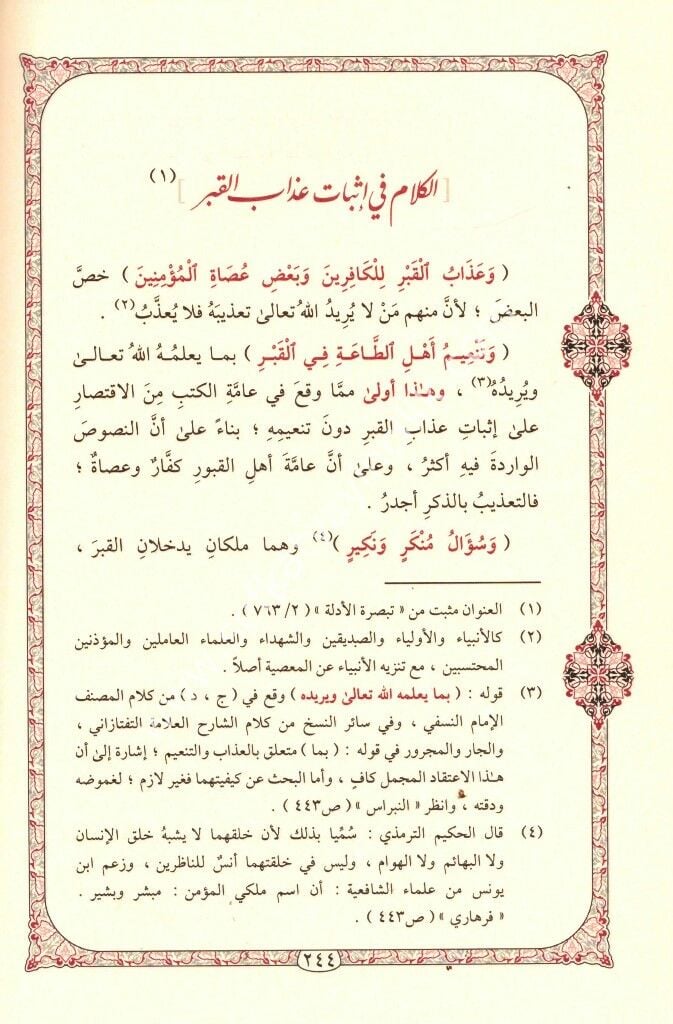 [ الكلام في إثبات عذاب القبر ] (١)
( وَعَذَابُ ٱلْقَبْرِ لِلْكَافِرِينَ وَبَعْضِ عُصَاةِ ٱلْمُؤْمِنِينَ ) خصَّ
البعضَ ؛ لأنَّ منهم مَنْ لا يُرِيدُ اللهُ تعالىٰ تعذيبَهُ فلا يُعذَّبُ(٢) .
( وَتَنْعِيمُ أَهْلِ ٱلطَّاعَةِ فِي ٱلْقَبْرِ ) بما يعلمُهُ اللهُ تعالىٰ
ويُرِيدُهُ(٣) ، وهـٰذا أولىٰ ممَّا وقعَ في عامَّةِ الكتبِ مِنَ الاقتصارِ
علىٰ إثباتِ عذابِ القبرِ دونَ تنعيمِهِ ؛ بناءً علىٰ أنَّ النصوصَ
الواردةَ فيهِ أكثرُ ، وعلىٰ أنَّ عامَّةَ أهلِ القبورِ كفَّارٌ وعصاةٌ ؛
فالتعذيبُ بالذكرِ أجدرُ .
( وَسُؤَالُ مُنْكَرٍ وَنَكِيرٍ )(٤) وهما ملكانِ يدخلانِ القبرَ ،
(١) العنوان مثبت من « تبصرة الأدلة » ( ٢/ ٧٦٣ ) .
(٢) كالأنبياء والأولياء والصديقين والشهداء والعلماء العاملين والمؤذنين
المحتسبين ، مع تنزيه الأنبياء عن المعصية أصلاً .
(٣) قوله : ( بما يعلمه الله تعالىٰ ويريده ) وقع في ( ج ، د ) من كلام المصنف
الإمام النسفي ، وفي سائر النسخ من كلام الشارح العلامة التفتازاني ،
والجار والمجرور في قوله : ( بما ) متعلق بالعذاب والتنعيم ؛ إشارة إلىٰ أن
هـٰذا الاعتقاد المجمل كافٍ ، وأما البحث عن كيفيتهما فغير لازم ؛ لغموضه
ودقته ، وانظر « النبراس » ( ص٤٤٣ ) .
(٤) قال الحكيم الترمذي : سُمِّيا بذلك لأن خلقهما لا يشبهُ خلق الإنسان
ولا البهائم ولا الهوام ، وليس في خلقتهما أنسٌ للناظرين ، وزعم ابن
يونس من علماء الشافعية : أن اسم ملكي المؤمن : مبشر وبشير .
« فرهاري » ( ص٤٤٣ ) .
٢٤٤